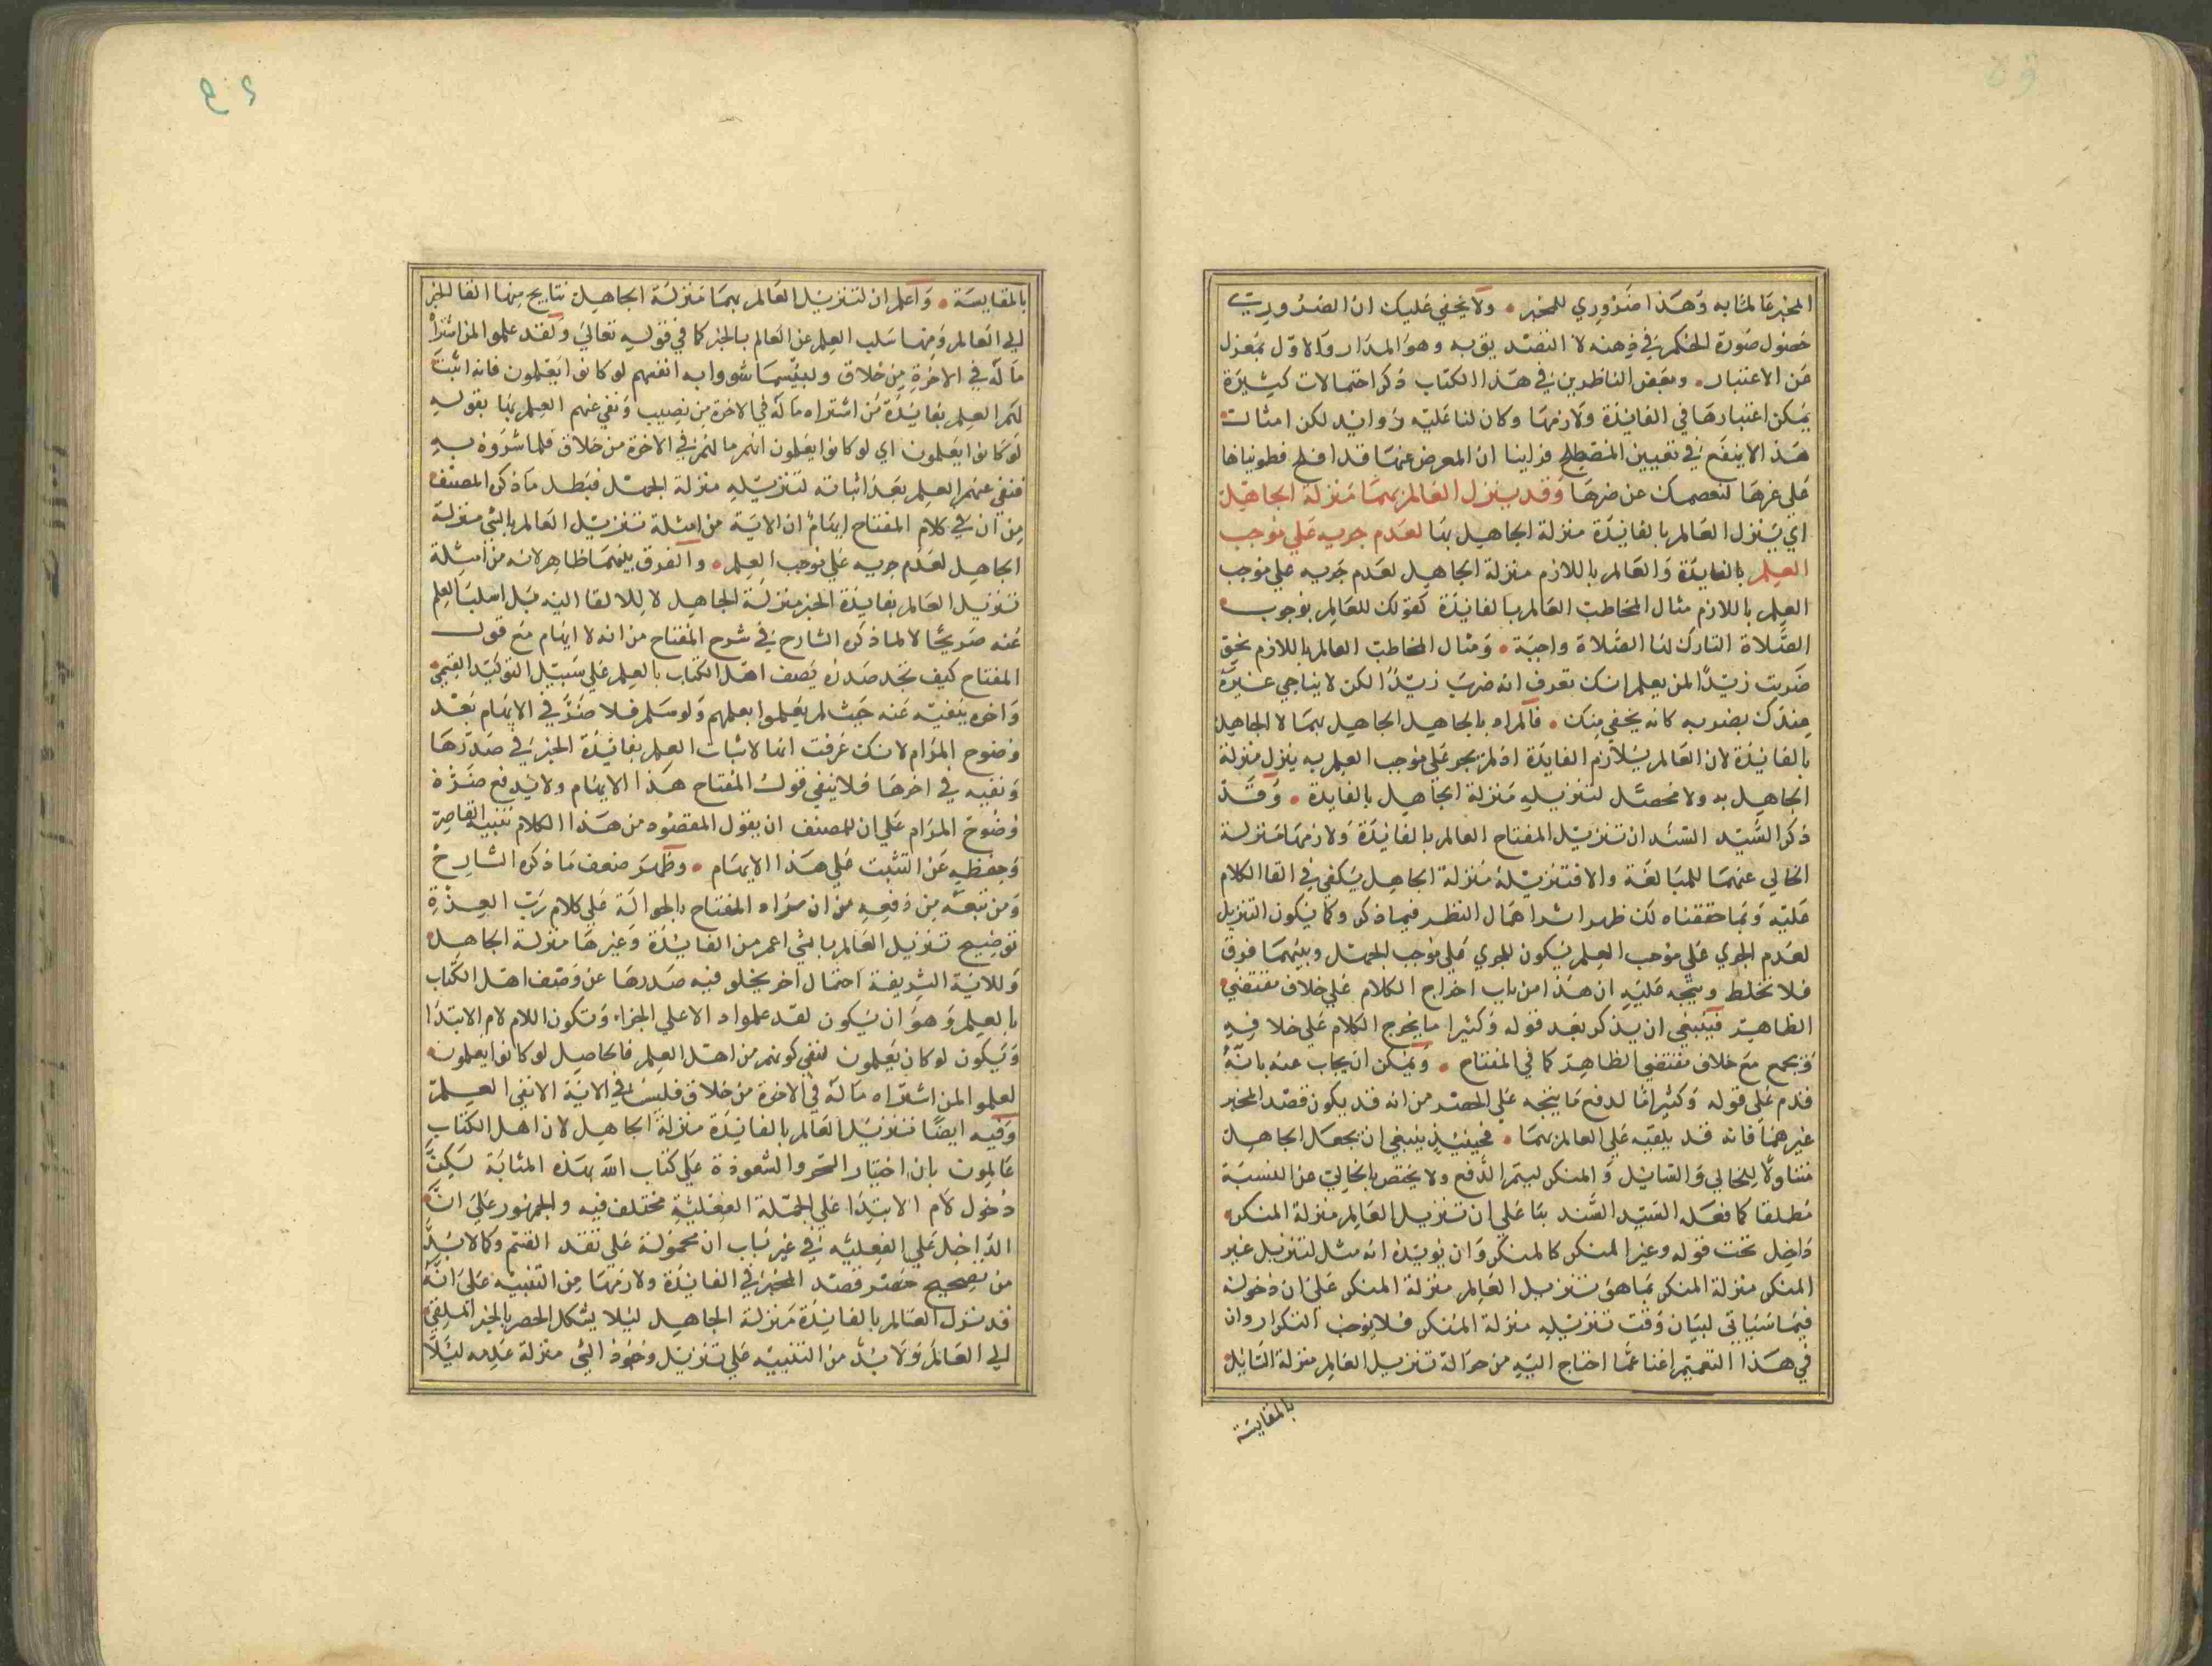 المخبر عالما به وهذا ضروري للمخبر • ولا يخفي عليك ان الضروري
حصول صورة الحكم في ذهنه لا التصديق به وهو المدار والاول بمعزل
عن الاعتبار • وبعض الناظرين في هذا الكتاب ذكر احتمالات كثيرة
يمكن اعتبارها في الفائدة ولازمها وكان لنا عليه زوايد لكن امثال
هذا لا ينفع في تعيين المصطلح فراينا ان المعرض عنها قد افلح فطويناها
علي غرها لنعصمك عن ضرها وقد ينزل العالم بهما منزلة الجاهل
اي ينزل العالم بالفائدة منزلة الجاهل بها لعدم جريه علي موجب
العلم بالفايدة والعالم باللازم منزلة الجاهل لعدم جريه علي موجب
العلم باللازم مثال المخاطب العالم بالفائدة كقولك للعالم بوجوب
الصلاة التارك لها الصلاة واجبة • ومثال المخاطب العالم باللازم نحو
ضربت زيدا لمن يعلم انك تعرف انه ضرب زيدا لكن لا يناجي غيره
عندك بضربه كانه يخفي منك • فالمراد بالجاهل الجاهل بهما لا الجاهل
بالفائدة لان العالم بلازم الفايدة اذ لم يجر علي موجب العلم به ينزل منزلة
الجاهل به ولا محصل لتنزيله منزلة الجاهل بالفايدة • وقد
ذكر السيد السند ان تنزيل المفتاح العالم بالفائدة ولازمها منزلة
الخالي عنهما للمبالغة والا فتنزيله منزلة الجاهل يكفي في القا الكلام
عليه وبما حققناه لك ظهر اشر اهمال النظر فيما ذكر وكما يكون التنزيل
لعدم الجري علي موجب العلم يكون للجري علي موجب الجهل وبينهما فرق
فلا تخلط ويتجه عليه ان هذا من باب اخراج الكلام علي خلاف مقتضي
الظاهر فينبغي ان يذكر بعد قوله وكثيرا ما يخرج الكلام علي خلافه
ويجمع مع خلاف مقتضي الظاهر كما في المفتاح • ويمكن ان يجاب عنه بانه
قدم علي قوله وكثيرا ما لدفع ما يتجه علي الحصر من انه قد يكون قصد المخبر
غيرهما فانه قد يلقيه علي العالم بهما • فحينئذ ينبغي ان يجعل الجاهل
متناولا للخالي والسائل والمنكر ليتم الدفع ولا يختص بالخالي عن النسبة
مطلقا كما فعله السيد السند بنا علي ان تنزيل العالم منزلة المنكر
داخل تحت قوله وغير المنكر كالمنكر وان يويده انه مثل لتنزيل غير
المنكر منزلة المنكر بما هو تنزيل العالم منزلة المنكر علي ان دخوله
فيما سياتي لبيان وقت تنزيله منزلة المنكر فلا يوجب التكرار وان
في هذا التعميم اغنا عما احتاج اليه من حوالة تنزيل العالم منزلة السائل
بالمقايسة
بالمقايسة • واعلم ان لتنزيل العالم بهما منزلة الجاهل نتايج منها القا الخبر
الي العالم ومنها سلب العلم عن العالم بالخبر كما في قوله تعالي ولقد علموا لمن اشتراه
ما له في الاخرة من خلاق ولبئسما شروا به انفسهم لو كانوا يعلمون فانه اثبت
لهم العلم بفايدة من اشتراه ما له في الاخرة من نصيب ونفي عنهم العلم بها بقوله
لو كانوا يعلمون اي لو كانوا يعلمون انهم ما لهم في الاخرة من خلاق فلما شروه به
فنفي عنهم العلم بعد اثباته لتنزيله منزلة الجهل فبطل ما ذكره المصنف
من ان في كلام المفتاح ايهام ان الاية من امثلة تنزيل العالم بالشي منزلة
الجاهل لعدم جريه علي موجب العلم • والفرق بينهما ظاهر لانه من امثلة
تنزيل العالم بفايدة الخبر منزلة الجاهل لا للالقا اليه بل لسلب العلم
عنه صريحا لا لما ذكره الشارح في شرح المفتاح من انه لا ايهام مع قول
المفتاح كيف تجد صدره يصف اهل الكتاب بالعلم علي سبيل التوكيد القسمي
واخره ينفيه عنه حيث لم يعلموا بعلمهم ولو سلم فلا ضرر في الايهام بعد
وضوح المرام لانك عرفت انها لاثبات العلم بفائدة الخبر في صدرها
ونفيه في اخرها فلا ينفي قول المفتاح هذا الايهام ولا يدفع ضرره
وضوح المرام علي ان للمصنف ان يقول المقصود من هذا الكلام تنبيه القاصر
وحفظه عن التثبت علي هذا الايهام • وظهر ضعف ما ذكره الشارح
ومن تبعه من دفعه من ان مراد المفتاح بالحوالة علي كلام رب العزة
توضيح تنزيل العالم بالشي اعم من الفائدة وغيرها منزلة الجاهل
وللاية الشريفة احتمال اخر يخلو فيه صدرها عن وصف اهل الكتاب
بالعلم وهو ان يكون لقد علموا دالا علي الجزاء وتكون اللام لام الابتدا
ويكون لو كان يعلمون لنفي كونهم من اهل العلم فالحاصل لو كانوا يعلمون
لعلموا لمن اشتراه ما له في الاخرة من خلاق فليس في الاية الا نفي العلم
وفيه ايضا تنزيل العالم بالفائدة منزلة الجاهل لان اهل الكتاب
عالمون بان اختيار السحر والشعوذة علي كتاب الله بهذه المثابة لكن
دخول لام الابتدا علي الجملة الفعلية مختلف فيه والجمهور علي ان
الداخل علي الفعلية في غير باب ان محمولة علي تقدير القسم وكما لا بد
من تصحيح حصر قصد المخبر في الفائدة ولازمها من التنبيه علي انه
قد ينزل العالم بالفائدة منزلة الجاهل ليلا يشكل الحصر بالخبر الملقي
الي العالم ولا بد من التنبيه علي تنزيل وجود الشي منزلة عدمه ليلا